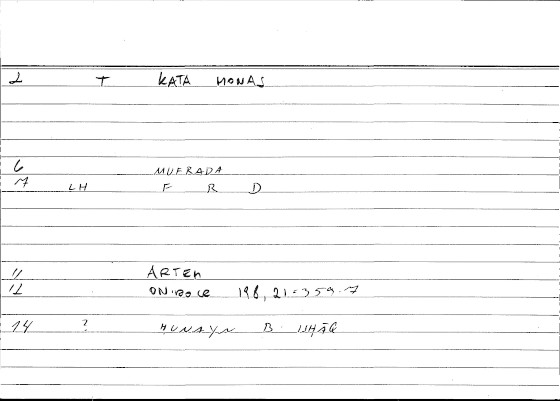 2 T KATA MONAS
6 MUFRADA
7 LH F R D
11 ARTEM
12 ONIROCR 198, 21 = 359.7
14 ? HUNAYN B. ISHĀQ